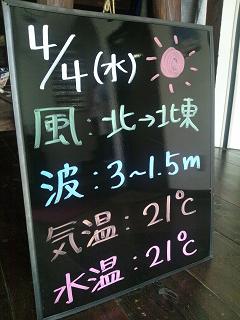 4/4(水)
風:北→北東
波:3~1.5m
気温:21℃
水温:21℃